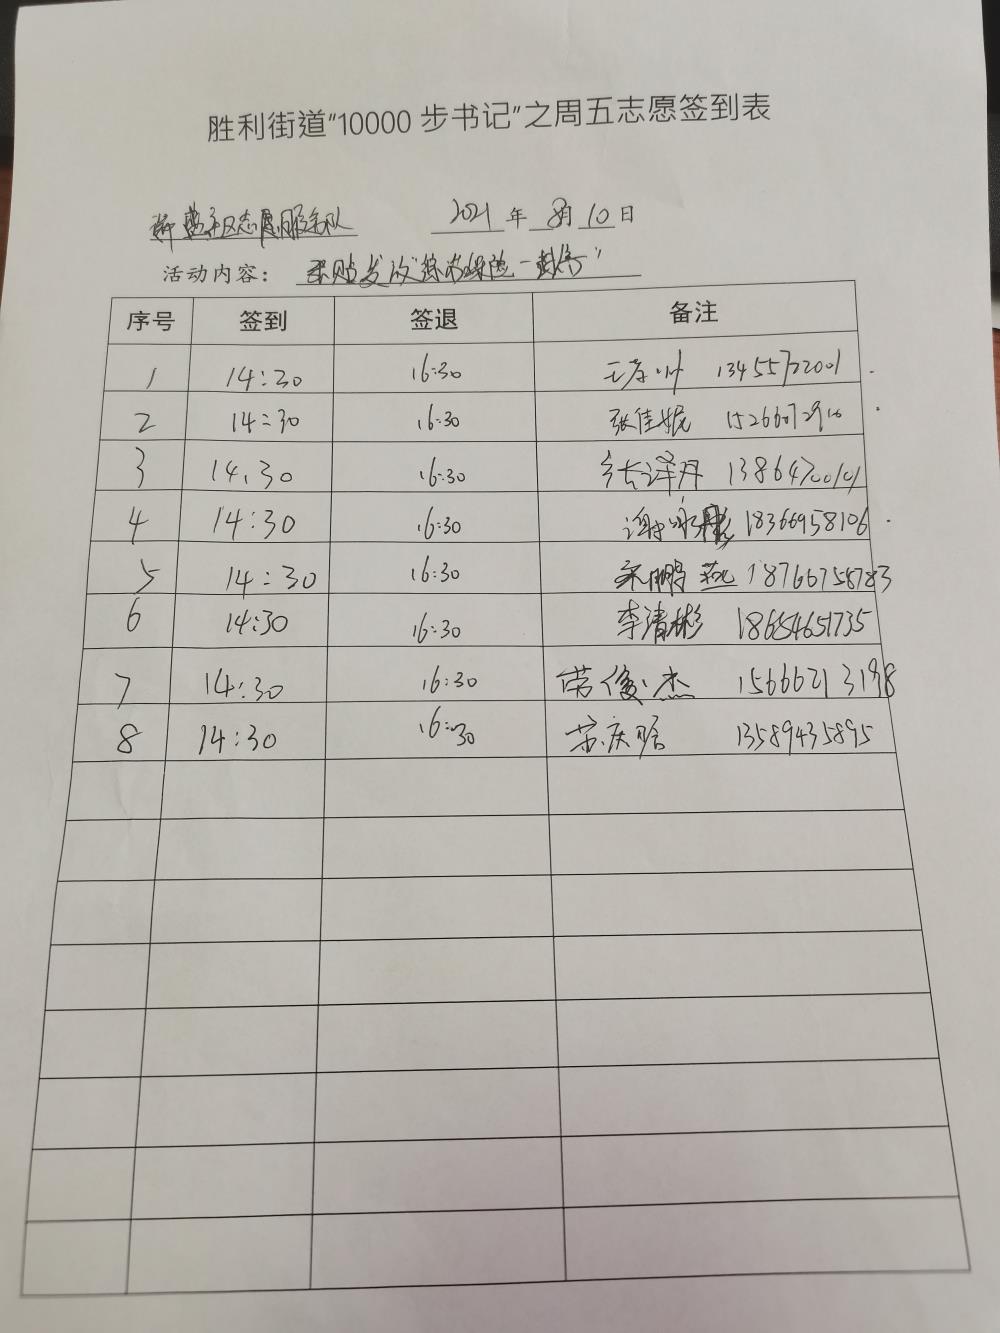 胜利街道"10000 步书记"之周五志愿签到表
社区志愿服务队 2021 年 8月 10 日
活动内容： 张贴发放
序号 签到 签退 备注
1 14:30 16:30 13455722001
2 14:30 16:30 张佳妮 15266072910
3 14:30 16:30 泽丹 13864700101
4 14:30 16:30 谢咏彤 18366958106
5 14:30 16:30 燕 18766758783
6 14:30 16:30 李清彬 18654651735
7 14:30 16:30 劳俊杰 15666213198
8 14:30 16:30 苏庆 13589435895